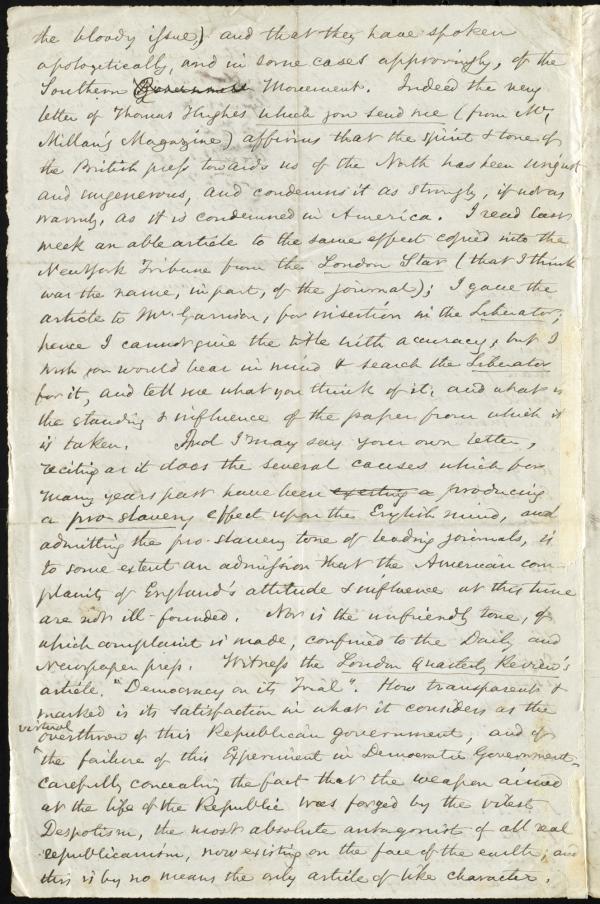 the bloody issue,) and that they have spoken
apologetically, and in some cases approvingly, of the
Southern Government Movement. Indeed the very
letter of Thomas Hughes which you send me (from Mc
Millan's Magazine) affirms that the spirit & tone of
the British press towards us of the North has been unjust
and ungenerous, and condemns it as strongly, if not as
warmly, as it is condemned in America. I read last
week an able article to the same effect copied into the
New York Tribune from the London Star (that I think
was the name, in part, of the journal); I gave the
article to Mr. Garrison, for insertion in the Liberator;
hence I cannot give the title with accuracy; but I
wish you would bear in mind & search the Liberator
for it, and tell me what you think of it; and what is
the standing & influence of the paper from which it
is taken. And I may say your own letter,
reciting as it does the several causes which for
many years past have been exerting a producing
a pro-slavery effect upon the English mind, and
admitting the pro-slavery tone of leading journals, is
to some extent an admission that the American com-
plaints of England's attitude & influence at this time
are not ill-founded. Nor is the unfriendly tone, of
which complaint is made, confined to the Daily and
Newspaper press. Witness the London Quarterly Review's
article, "Democracy on its Trial". How transparent &
marked is its satisfaction in what it considers as the
virtual
overthrow of this Republican government, and of
the failure of this Experiment in Democratic Government,
carefully concealing the fact that the weapon aimed
at the life of the Republic was forged by the vilest
Despotism, the most absolute antagonist of all real
republicanism, now existing on the face of the earth; and
this is by no means the only article of like character.